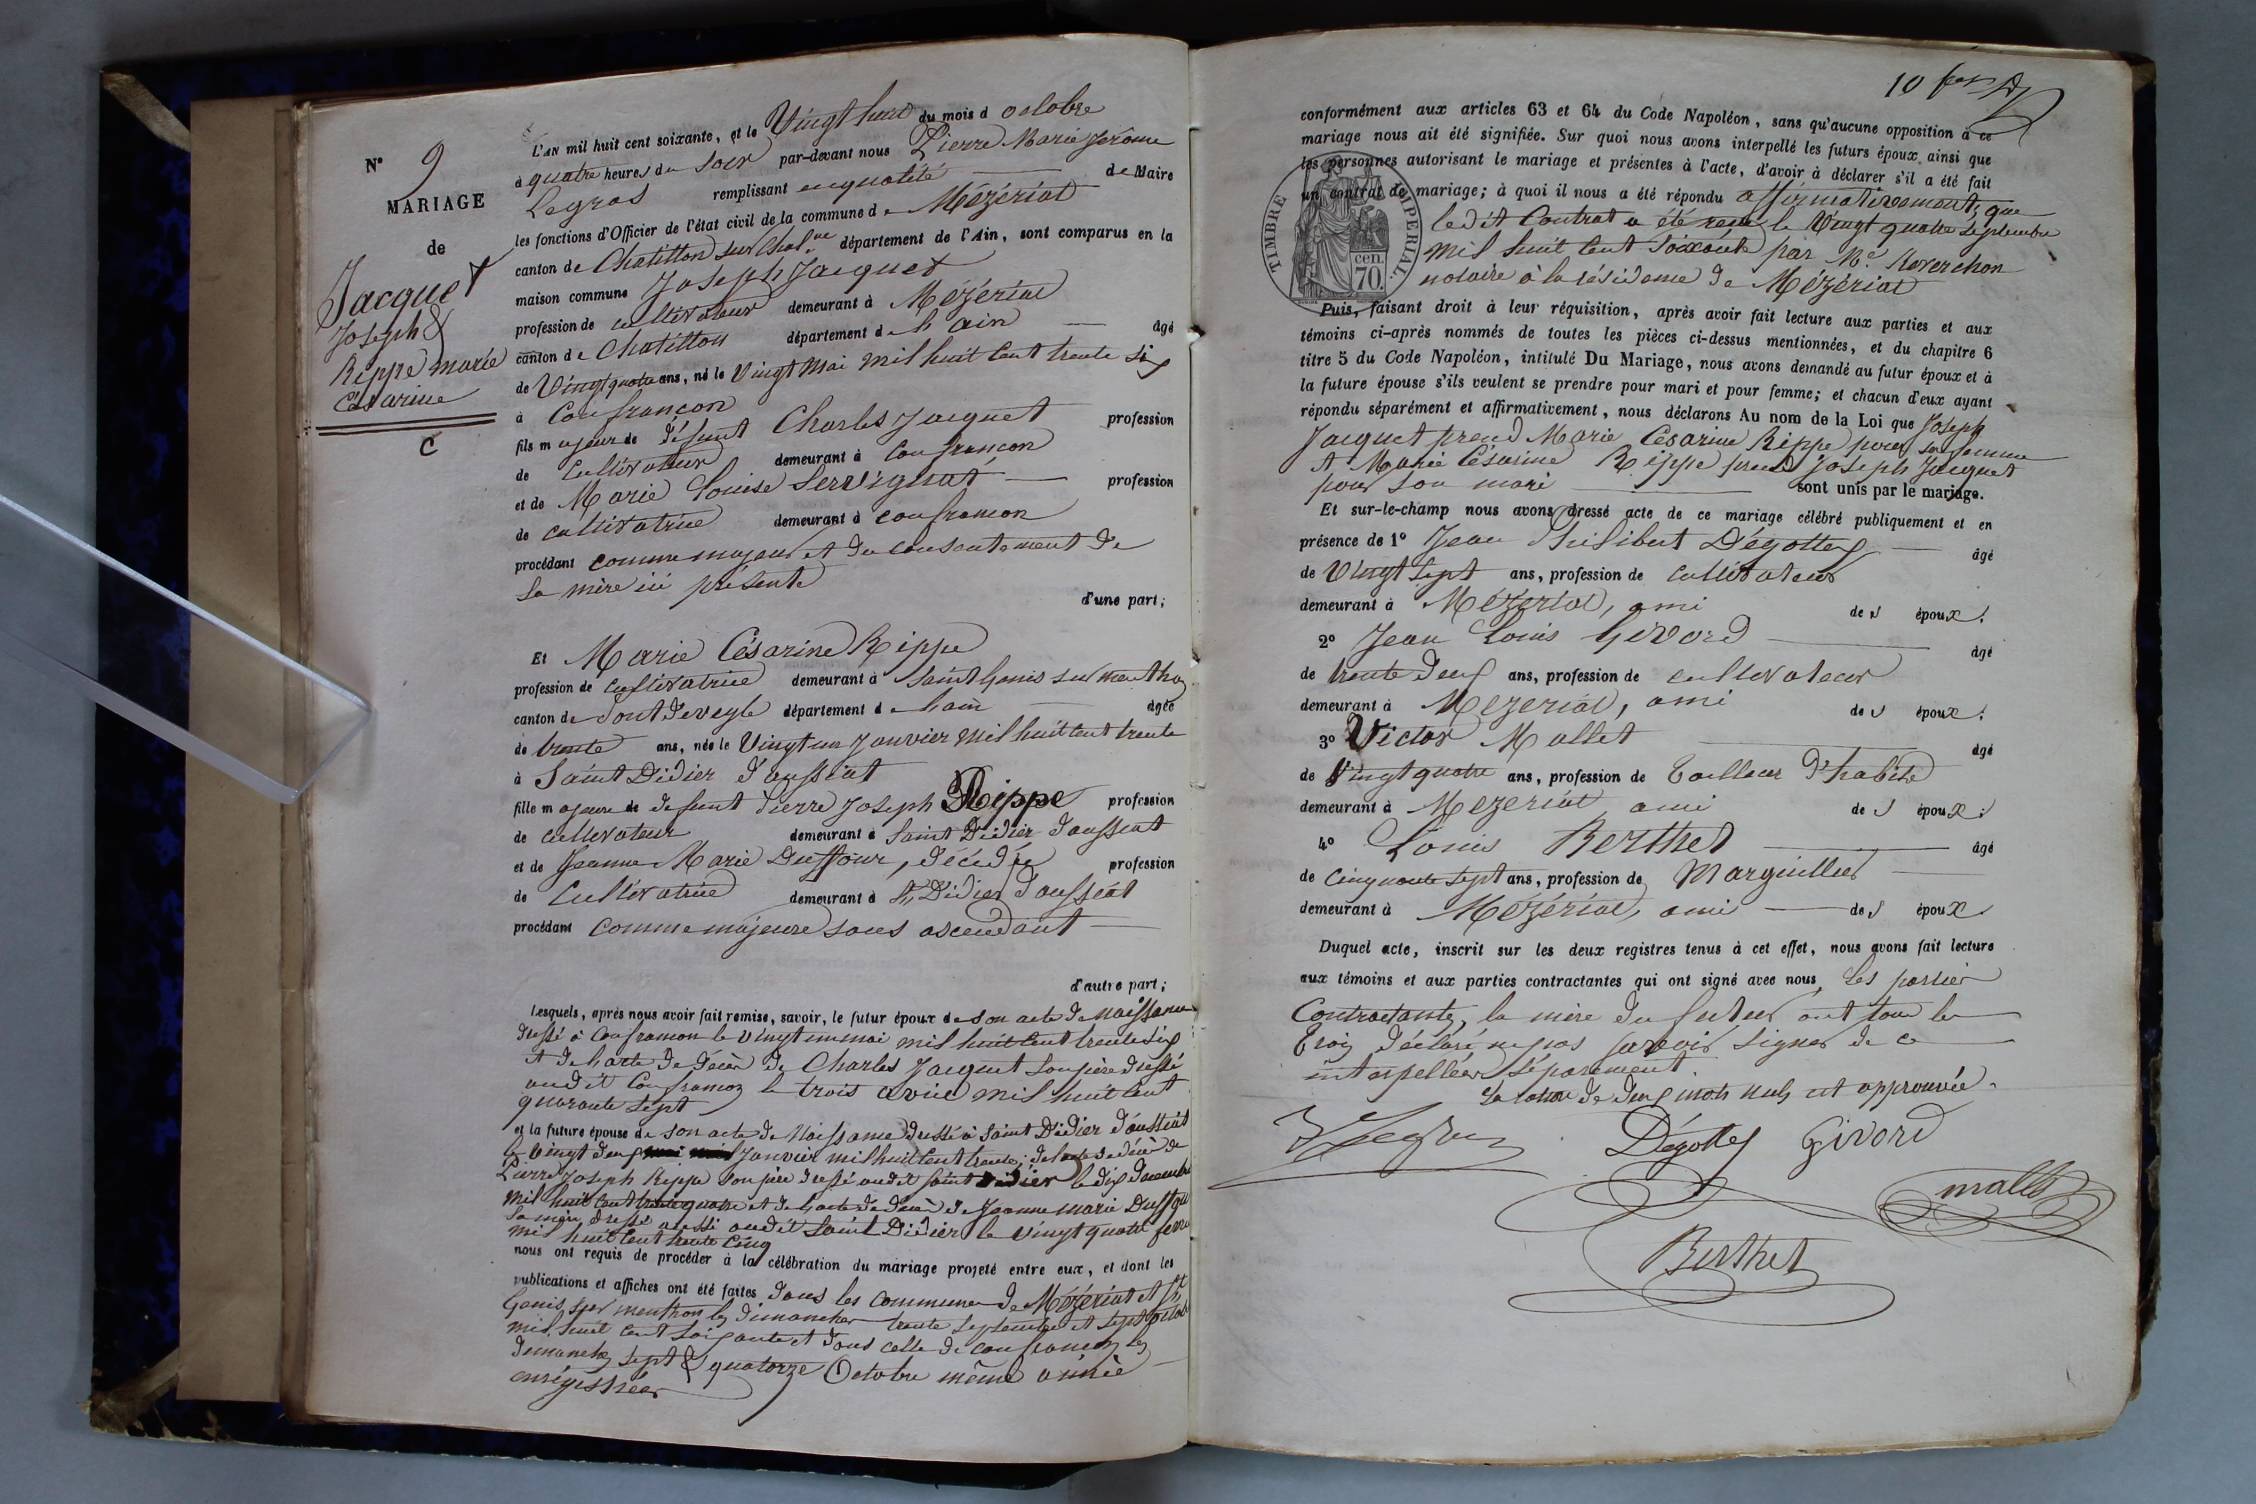 N° 9
MARIAGE
de
Jacquet
Joseph &
Rippe marie
Césarine
C
L'AN mil huit cent soixante, et le Vingt huit du mois d octobre
à quatre heures du soir par-devant nous Pierre Marie Jérôme
Legros remplissant en qualité de Maire
les fonctions d'Officier de l'état civil de la commune d e Mézériat
canton de Chatillon sur Chal.ne département de l'Ain, sont comparus en la
maison commune Joseph Jacquet
profession de cultivateur demeurant à Mézériat
canton de Chatillon département d e l'ain âgé
de Vingt quatre ans, né le Vingt Mai mil huit cent trente six
à Confrançon
fils majeur de défunt Charles Jacquet profession
de Cultivateur demeurant à Confrançon
et de Marie Louise Servignat profession
de cultivatrice demeurant à confrancon
procédant comme majeur et du consentement de
sa mère ici présente
d'une part;
Et Marie Césarine Rippe
profession de cultivatrice demeurant à Saint Genis sur menthon
canton de Pont de veyle département d e l'ain âgée
de trente ans, née le Vingt un Janvier mil huit cent trente
à Saint Didier d'aussiat
fille majeure de defunt Pierre Joseph Rippe profession
de cultivateur demeurant à Saint Didier d'aussiat
et de Jeanne Marie Duffour, décédée profession
de Cultivatrice demeurant à St Didier d'aussiat
procédant comme majeure sans ascendant
d'autre part;
Lesquels, après nous avoir fait remise, savoir, le futur époux de son acte de naissance
dressé à Confrancon le vingt un mai mil huit cent trente six
et de l'acte de décès de Charles Jacquet son père dressé
audit Confrancon le trois avril mil huit cent
quarante sept
et la future épouse de son acte de Naissance dressé à Saint Didier d'aussiat
le vingt deux Janvier mil huit cent trente; de l'acte de décès de
Pierre Joseph Rippe son père dressé audit Saint Didier le dix
mil huit cent trente quatre et de l'acte de décès de Jeanne marie Duffour
sa mère dressé aussi audit Saint Didier le vingt quatre
mil huit cent trente cinq
nous ont requis de procéder à la célébration du mariage projeté entre eux, et dont les
publications et affiches ont été faites dans les communes de Mézériat et St
Genis sur menthon les dimanches trente septembre et sept octobre
mil huit cent soixante et dans celle de confrancon les
dimanches sept & quatorze Octobre même année
enrégistrées
10
conformément aux articles 63 et 64 du Code Napoléon, sans qu'aucune opposition à ce
mariage nous ait été signifiée. Sur quoi nous avons interpellé les futurs époux ainsi que
les personnes autorisant le mariage et présentes à l'acte, d'avoir à déclarer s'il a été fait
un contrat de mariage; à quoi il nous a été répondu affirmativement, que
ledit Contrat a été reçu le Vingt quatre septembre
mil huit cent soixante par Me. Reverchon
notaire à la résidence de Mézériat
TIMBRE IMPERIAL.
cen.
70.
Puis, faisant droit à leur réquisition, après avoir fait lecture aux parties et aux
témoins ci-après nommés de toutes les pièces ci-dessus mentionnées, et du chapitre 6
titre 5 du Code Napoléon, intitulé Du Mariage, nous avons demandé au futur époux et à
la future épouse s'ils veulent se prendre pour mari et pour femme; et chacun d'eux ayant
répondu séparément et affirmativement, nous déclarons Au nom de la Loi que Joseph
Jacquet prend Marie Césarine Rippe pour sa femme
et Marie Césarine Rippe prend Joseph Jacquet
pour son mari sont unis par le mariage.
Et sur-le-champ nous avons dressé acte de ce mariage célébré publiquement et en
présence de 1° Jean Philibert Dégottex âgé
de Vingt sept ans, profession de cultivateur
demeurant à Mézériat, ami des époux.
2° Jean Louis Givord âgé
de trente deux ans, profession de cultivateur
demeurant à Mezeriat, ami des époux.
3° Victor Mallet âgé
de Vingt quatre ans, profession de Tailleur d'habits
demeurant à Mezeriat ami des époux.
4° Louis Berthet âgé
de cinquante sept ans, profession de Marguillier
demeurant à Mézériat, ami des époux.
Duquel acte, inscrit sur les deux registres tenus à cet effet, nous avons fait lecture
aux témoins et aux parties contractantes qui ont signé avec nous, Les parties
Contractantes, la mère du futur ont tous les
Trois déclaré ne pas savoir signer de ce
interpellés séparement
La rature de deux mots nuls est approuvée.
Legros
Dégottex Givord
mallet
Berthet